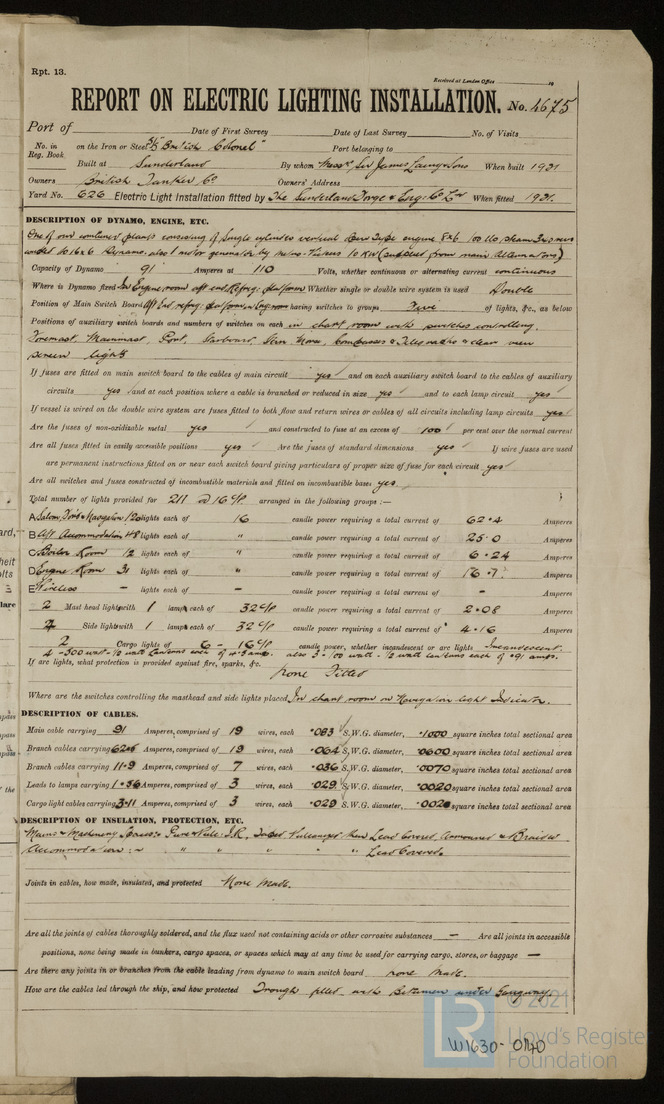 Rpt. 13.
Received at London Office
REPORT ON ELECTRIC LIGHTING INSTALLATION. No. 4675
Port of Date of First Survey Date of Last Survey No. of Visits
No. in Reg. Book on the Iron or Steel S/S British Colonel Port belonging to
Built at Sunderland By whom Messrs Sir James Laing & Sons When built 1921
Owners British Tanker Co Owners' Address
Yard No. 626 Electric Light Installation fitted by The Sunderland Forge & Eng: Co Ltd When fitted 1921.
DESCRIPTION OF DYNAMO, ENGINE, ETC.
One of our combined plants consisting of Single cylinder vertical Open Type engine 8x6 100 lbs steam
coupled to 16x6 Dynamo. also 1 motor generator by Metro-Vickers 10 KW (supplied from main Alternators)
Capacity of Dynamo 91 Amperes at 110 Volts, whether continuous or alternating current continuous
Where is Dynamo fixed In Engine room aft end Refrig: platform Whether single or double wire system is used Double
Position of Main Switch Board Aft End refrig: platform in Eng room having switches to groups Five of lights, &c., as below
Positions of auxiliary switch boards and numbers of switches on each in chart room with switches controlling.
Foremast, Mainmast, Port, Starboard, Stern, Morse, Compasses & Telegraphs & clear view
screen lights
If fuses are fitted on main switch board to the cables of main circuit yes and on each auxiliary switch board to the cables of auxiliary
circuits yes and at each position where a cable is branched or reduced in size yes and to each lamp circuit yes
If vessel is wired on the double wire system are fuses fitted to both flow and return wires or cables of all circuits including lamp circuits yes
Are the fuses of non-oxidizable metal yes and constructed to fuse at an excess of 100 per cent over the normal current
Are all fuses fitted in easily accessible positions yes Are the fuses of standard dimensions yes If wire fuses are used
are permanent instructions fitted on or near each switch board giving particulars of proper size of fuse for each circuit yes
Are all switches and fuses constructed of incombustible materials and fitted on incombustible bases yes
Total number of lights provided for 211 @ 16 C/P arranged in the following groups :—
A Saloon, Fore & Navigation 120 lights each of 16 candle power requiring a total current of 62.4 Amperes
B Aft Accommodation 48 lights each of " candle power requiring a total current of 25.0 Amperes
C Boiler Room 12 lights each of " candle power requiring a total current of 6.24 Amperes
D Engine Room 31 lights each of " candle power requiring a total current of 16.1 Amperes
E Wireless – lights each of – candle power requiring a total current of – Amperes
2 Mast head light with 1 lamp each of 32 C/P candle power requiring a total current of 2.08 Amperes
Side light with 1 lamp each of 32 C/P candle power requiring a total current of 4.16 Amperes
2 Cargo lights of 6 – 16 C/P candle power, whether incandescent or arc lights Incandescent.
4 – 500 watt – ½ watt lanterns each of 4.5 amps. also 3 – 100 watt – ½ watt lanterns each of .91 amps.
If arc lights, what protection is provided against fire, sparks, &c.
None Fitted
Where are the switches controlling the masthead and side lights placed In chart room on Navigation light Indicator.
DESCRIPTION OF CABLES.
Main cable carrying 91 Amperes, comprised of 19 wires, each .083 S.W.G. diameter, .1000 square inches total sectional area
Branch cables carrying 62.4 Amperes, comprised of 19 wires, each .064 S.W.G. diameter, .0600 square inches total sectional area
Branch cables carrying 11.9 Amperes, comprised of 7 wires, each .036 S.W.G. diameter, .0070 square inches total sectional area
Leads to lamps carrying 1.56 Amperes, comprised of 3 wires, each .029 S.W.G. diameter, .0020 square inches total sectional area
Cargo light cables carrying 3.11 Amperes, comprised of 3 wires, each .029 S.W.G. diameter, .0020 square inches total sectional area
DESCRIPTION OF INSULATION, PROTECTION, ETC.
Mains & Machinery Spaces: Pure & Vulc: I.R., Taped, Vulcanized then Lead Covered Armoured & Braided
Accommodation: " " " " " " Lead Covered.
Joints in cables, how made, insulated, and protected None Made.
Are all the joints of cables thoroughly soldered, and the flux used not containing acids or other corrosive substances — Are all joints in accessible
positions, none being made in bunkers, cargo spaces, or spaces which may at any time be used for carrying cargo, stores, or baggage —
Are there any joints in or branches from the cable leading from dynamo to main switch board none made.
How are the cables led through the ship, and how protected Trough filled with Bitumen under Gangway
© 2021
LR
Lloyd's Register
Foundation
W1630-0140